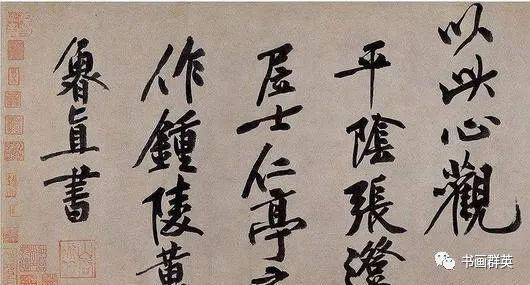 以此心觀
平陰張澄
居士仁亭
作鍾陵黃
魯直書
书画群英